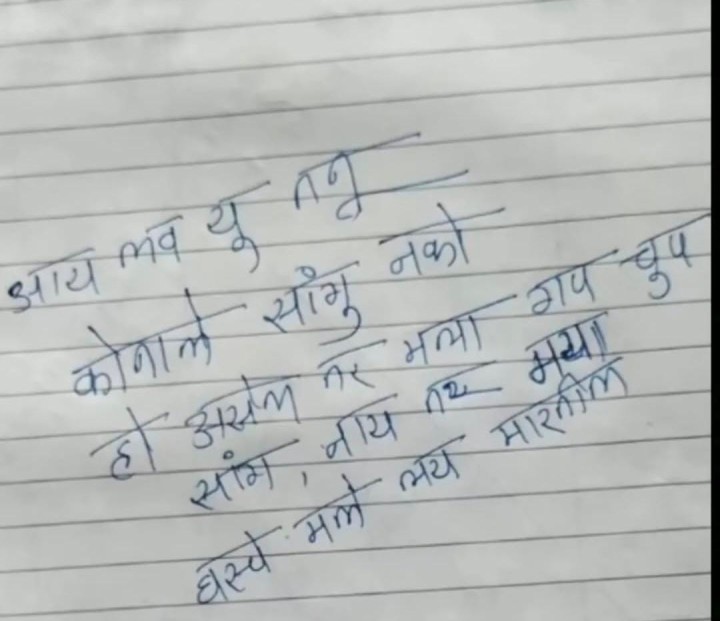 आय लव यू तनू
कोनाले सांगु नको
हो असेल तर मला गप चुप
सांग, नाय तर मया
घरचे मले लय मारतील